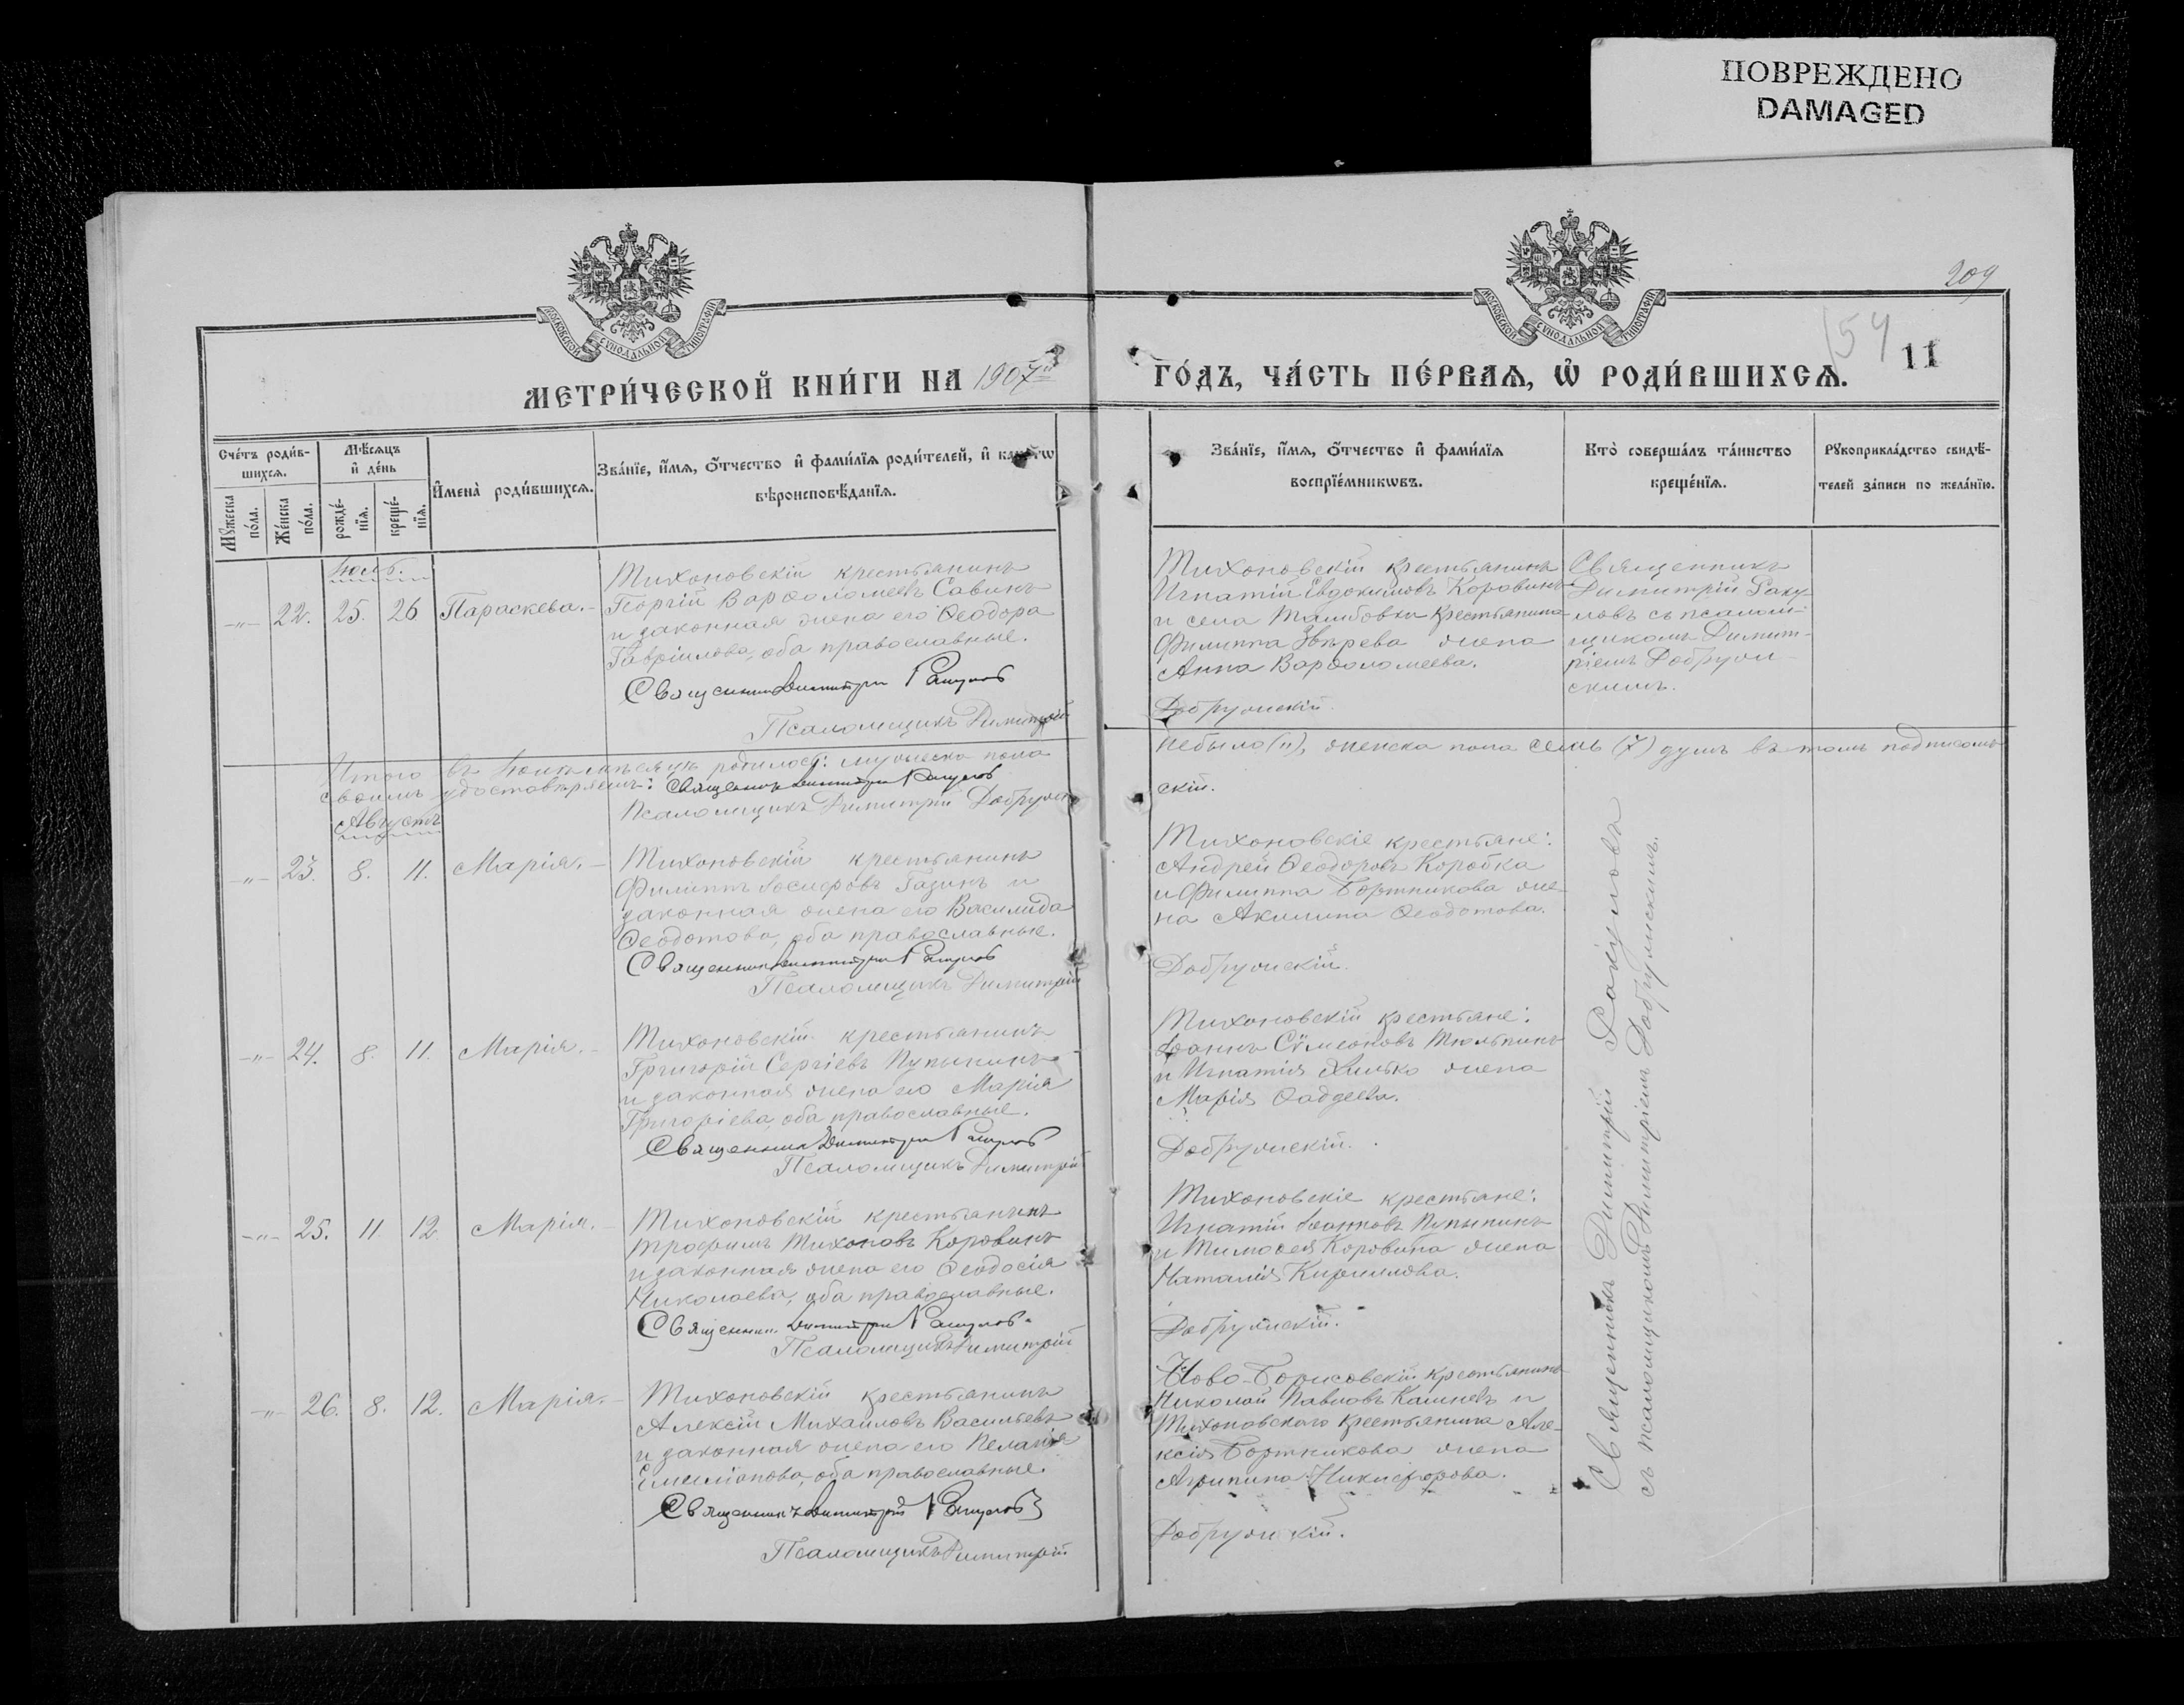 ПОВРЕЖДЕНО
DAMAGED
209
154
11
МОСКОВСКОЙ СѴНОДАЛЬНОЙ ТИПОГРАФІИ
МОСКОВСКОЙ СѴНОДАЛЬНОЙ ТИПОГРАФІИ
МЕТРИ́ЧЕСКОЙ КНИ́ГИ НА 1907й
ГО́ДЪ, ЧА́СТЬ ПЕ́РВАѦ, Ѡ҆ РОДИ́ВШИХСѦ.
Сче́тъ роди́в-
шихсѧ.
Мꙋжеска по́ла.
Же́нска по́ла.
Мѣ́сѧцъ
и҆ де́нь
рожде́-
нїѧ.
креще́-
нїѧ.
И҆мена̀ роди́вшихсѧ.
Зва́нїе, и҆́мѧ, ѻ҆́тчество и҆ фами́лїѧ роди́телей, и҆ какогѡ
вѣроисповѣ́данїѧ.
Зва́нїе, и҆́мѧ, ѻ҆́тчество и҆ фами́лїѧ
воспрїе́мникѡвъ.
Кто̀ соверша́лъ та́инство
креще́нїѧ.
Рꙋкоприкла́дство свидѣ́-
телей за́писи по жела́нїю.
Іюль.
-"- 22. 25. 26 Параскева.
Тихоновскій крестьянинъ
Георгій Варѳоломеевъ Савинъ
и законная жена его Ѳеодора
Гавріилова, оба православные.
Священникъ Димитрій Ракуловъ
Псаломщикъ Димитрій
Тихоновскій крестьянинъ
Игнатій Евдокимовъ Коровинъ
и села Тамбовки крестьянина
Филиппа Звѣрева жена
Анна Варѳоломеева.
Добружскій.
Священникъ
Димитрій Раку-
ловъ съ псалом-
щикомъ Димит-
ріемъ Добруж-
скимъ.
Итого въ Іюлѣ мѣсяцѣ родилось: мужеска пола
небыло("), женска пола семь (7) душъ въ томъ подписомъ
своимъ удостовѣряемъ: Священникъ Димитрій Ракуловъ
Псаломщикъ Димитрій Добруж
скій.
Августъ
-"- 23. 8. 11. Марія.
Тихоновскій крестьянинъ
Филиппъ Іосифовъ Газинъ и
законная жена его Василида
Ѳеодотова, оба православные.
Священникъ Димитрій Ракуловъ
Псаломщикъ Димитрій
Тихоновскіе крестьяне:
Андрей Ѳеодоровъ Коробка
и Филиппа Бортникова же-
на Акилина Ѳеодотова.
Добружскій.
-"- 24. 8. 11. Марія.
Тихоновскій крестьянинъ
Григорій Сергіевъ Пупынинъ
и законная жена его Марія
Григоріева, оба православные.
Священникъ Димитрій Ракуловъ
Псаломщикъ Димитрій
Тихоновскій крестьяне:
Іоаннъ Сѵмеоновъ Тюльпинъ
и Игнатія Хилько жена
Марія Ѳаддеева.
Добружскій.
-"- 25. 11. 12 Марія.
Тихоновскій крестьянинъ
Трофимъ Тихоновъ Коровинъ
и законная жена его Ѳеодосія
Николаева, оба православные.
Священникъ Димитрій Ракуловъ
Псаломщикъ Димитрій
Тихоновскіе крестьяне:
Игнатій Іоанновъ Пупынинъ
и Тимоѳея Коровина жена
Наталія Кириллова.
Добружскій.
-"- 26. 8. 12. Марія.
Тихоновскій крестьянинъ
Алексій Михаиловъ Васильевъ
и законная жена его Пелагія
Емиліанова, оба православные.
Священникъ Димитрій Ракуловъ
Псаломщикъ Димитрій
Ново-Борисовскій крестьянинъ
Николай Павловъ Кашневъ и
Тихоновскаго крестьянина Але-
ксія Бортникова жена
Агрипина Никифорова.
Добружскій.
Священникъ Димитрій Ракулова
съ псаломщикомъ Димитріемъ Добружскимъ.